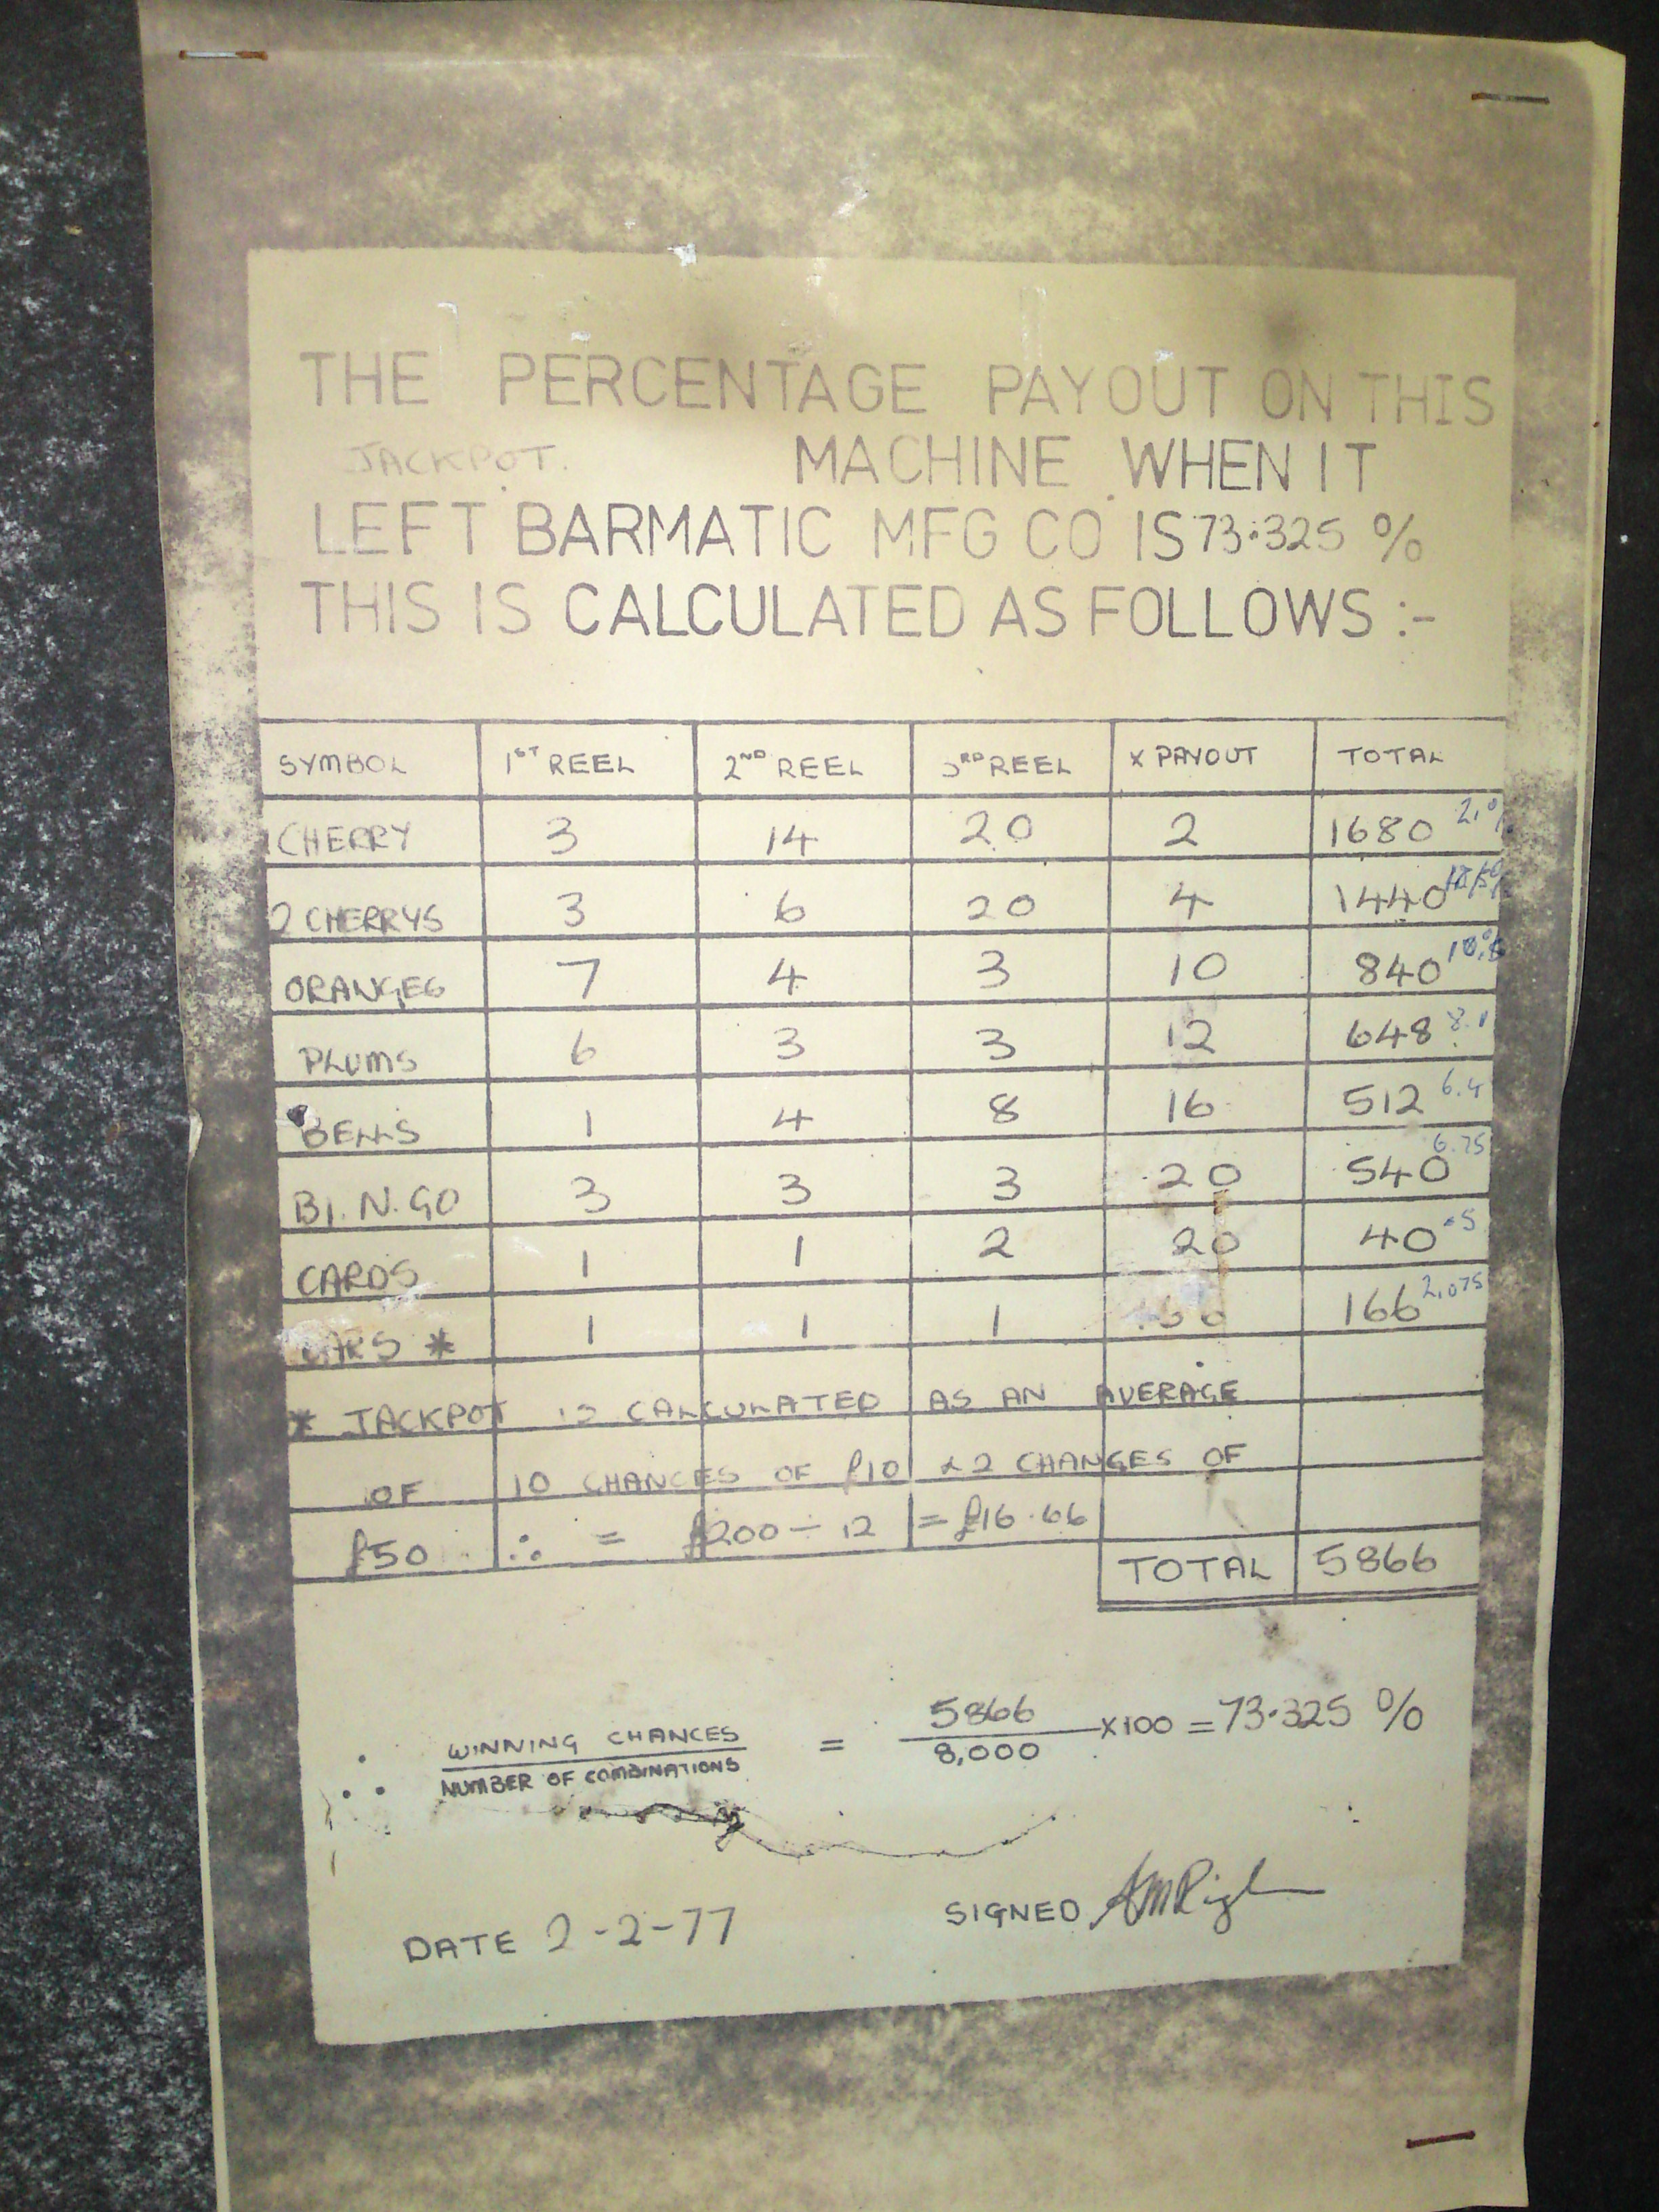 THE PERCENTAGE PAYOUT ON THIS
JACKPOT. MACHINE WHEN IT
LEFT BARMATIC MFG CO IS 73.325 %
THIS IS CALCULATED AS FOLLOWS :-
SYMBOL 1ST REEL 2ND REEL 3RD REEL X PAYOUT TOTAL
1 CHERRY 3 14 20 2 1680
2 CHERRYS 3 6 20 4 1440
ORANGES 7 4 3 10 840
PLUMS 6 3 3 12 648 8.1
BELLS 1 4 8 16 512 6.4
BI. N. GO 3 3 3 20 540 6.75
CARDS 1 1 2 20 40 .5
* 1 1 1 166 2.075
* JACKPOT IS CALCULATED AS AN AVERAGE
OF 10 CHANCES OF £10 & 2 CHANGES OF
£50 ∴ = £200 ÷ 12 = £16.66
TOTAL 5866
∴ WINNING CHANCES = 5866 X100 = 73.325 %
NUMBER OF COMBINATIONS 8,000
DATE 2-2-77 SIGNED